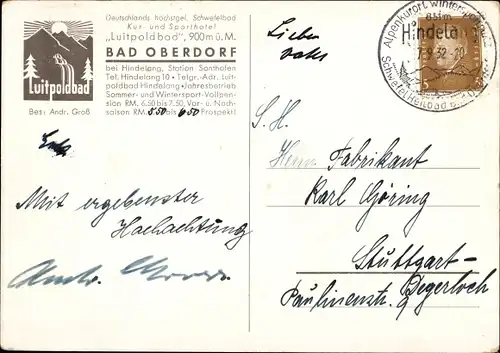 Deutschlands höchstgel. Schwefelbad
Kur- und Sporthotel
„Luitpoldbad“, 900m ü.M.
BAD OBERDORF
bei Hindelang, Station Sonthofen
Tel. Hindelang 10 · Telgr.-Adr. Luit-
poldbad Hindelang · Jahresbetrieb
Sommer- und Wintersport-Vollpen-
sion RM. 6.50 bis 7.50, Vor- u. Nach-
saison RM. 5.50 bis 6.50 Prospekt!
Luitpoldbad
Bes: Andr. Groß
Mit ergebenster
Hochachtung
Andr. Gross
Lieber
Alpenkurort Wintersportplatz
Hindelang
7.9.32.-20
Schwefel-Heilbad
5
S. H.
Herrn Fabrikant
Karl Göring
Stuttgart-
Degerloch
Paulinenstr. 9